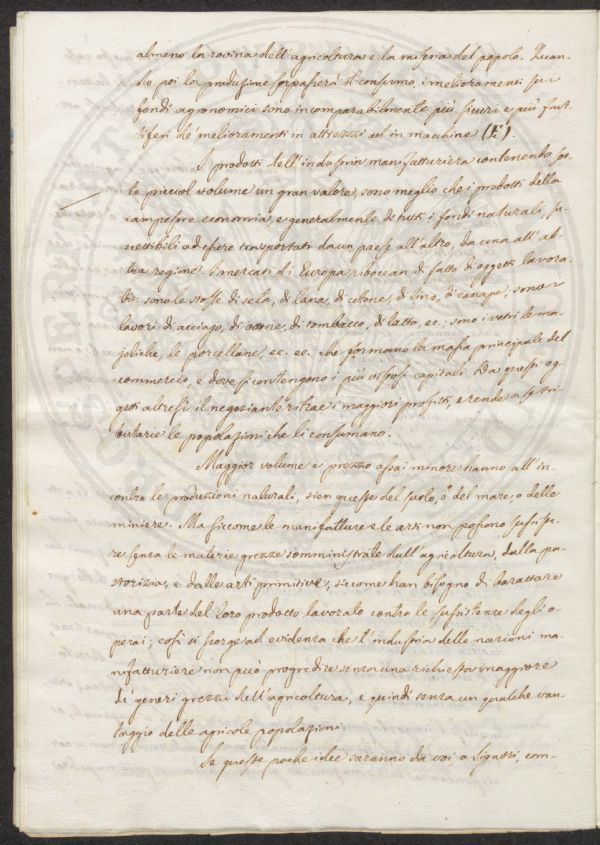 almeno la rovina dell'agricoltura e la miseria del popolo. Quan-
do poi la produzione sorpasserà il consumo, i melioramenti su i
fondi agronomici sono incomparabilmente più sicuri e più frut
tiferi de' melioramenti in attrezzi ed in macchine (F).
I prodotti dell'industria manifatturiera contenendo sot
to piccol volume un gran valore, sono meglio che i prodotti della
campestre economia, e generalmente di tutti i fondi naturali, su
scettibili ad essere trasportati da un paese all'altro, da una all'al
tra regione. I mercati di Europa riboccan di fatto di oggetti lavora
ti: sono le stoffe di seta, di lana, di cotone, di lino, di canape; sono i
lavori di acciajo, di ottone, di tombacco, di latta, ec.; sono i vetri le ma
joliche, le porcellane, ec. ec. che formano la massa principale del
commercio, e dove si contengono i più vistosi capitali. Da questi og
getti altresì il negoziante ritrae i maggiori profitti, e rende a se tri
butarie le popolazioni che li consumano.
Maggior volume e prezzo assai minore hanno all'in
contro le produzioni naturali, sien queste del suolo, o del mare, o delle
miniere. Ma siccome le manifatture e le arti non possono sussiste
re senza le materie grezze somministrate dall'agricoltura, dalla pa-
storizia, e dalle arti primitive, siccome han bisogno di barattare
una parte del loro prodotto lavorato contro le sussistenze degli o
perai; così si scorge ad evidenza che l'industria delle nazioni ma
nifatturiere non può progredire senza una richiesta maggiore
di generi grezzi dell'agricoltura, e quindi senza un qualche van-
taggio delle agricole popolazioni.
Se queste poche idee saranno da voi o Signori, com-